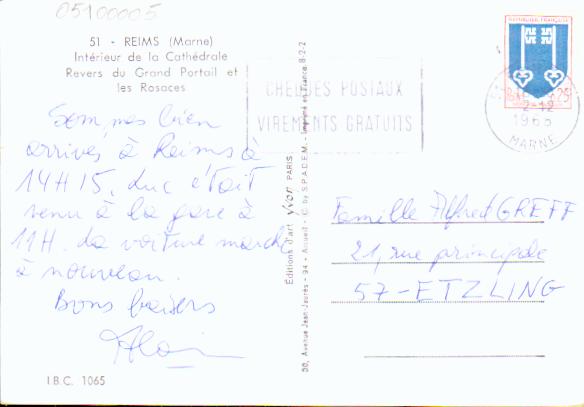 05100005
51 - REIMS (Marne)
Intérieur de la Cathédrale
Revers du Grand Portail et
les Rosaces
Sommes bien
arrivés à Reims à
14H15. Luc était
venu à la gare à
11H. La voiture marche
à nouveau.
Bons baisers
Alain
I.B.C. 1065
Editions d'art yvon PARIS
30, Avenue Jean-Jaurès - 94 - Arcueil - © by S.P.A.D.E.M. - Imprimé en France. 8-2-2
CHEQUES POSTAUX
VIREMENTS GRATUITS
REPUBLIQUE FRANÇAISE
0,25
2-12
1966
MARNE
Famille Alfred GREFF
21, rue principale
57-ETZLING